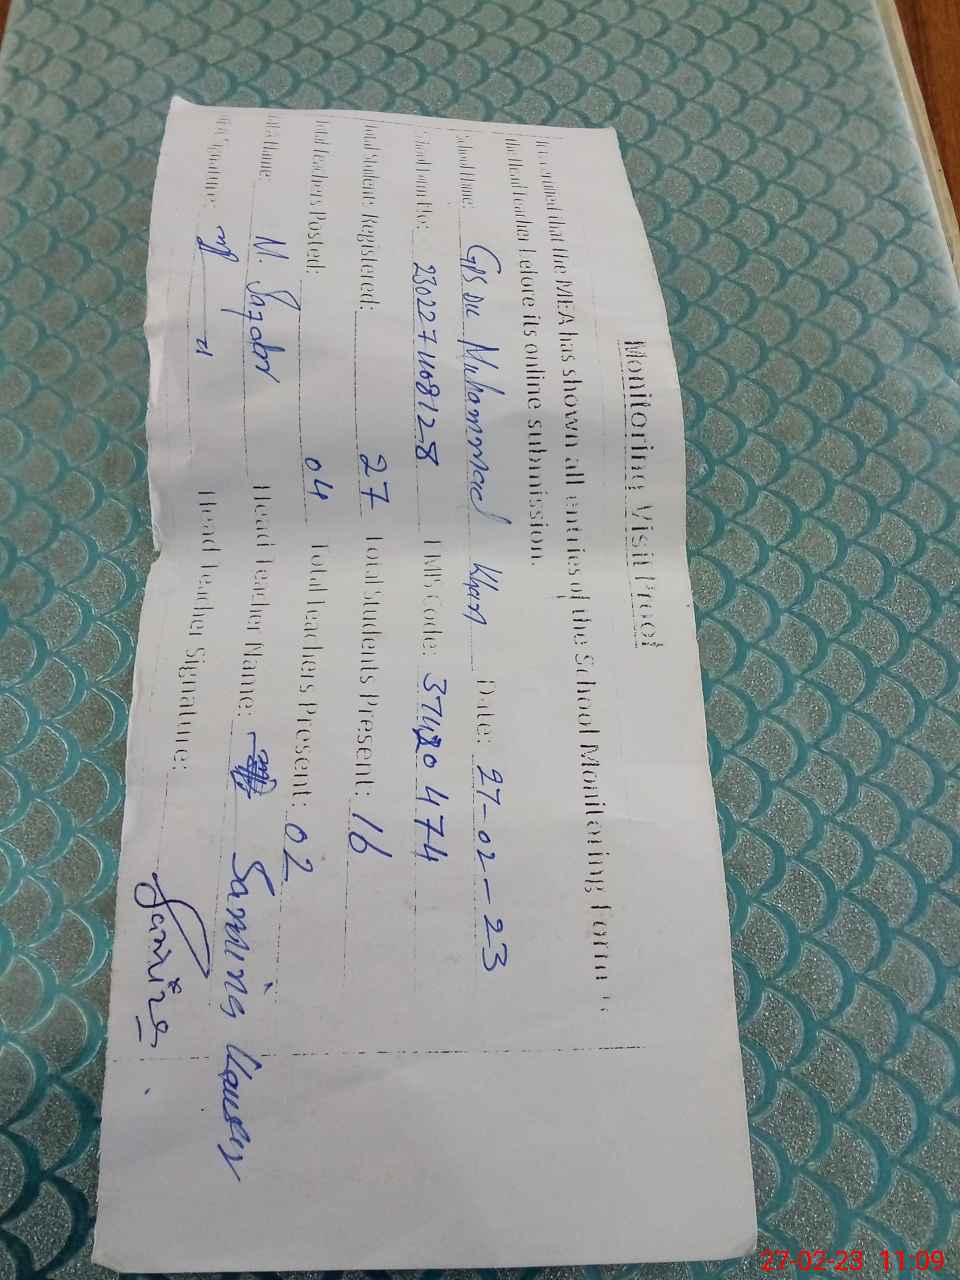 Monitoring Visit Proof
It is certified that the MEA has shown all entries of the School Monitoring Form to
the Head Teacher before its online submission.
School Name: GPS Muhammad Khan Date: 27-02-23
EMIS Code: 37480474
Total Students Registered: 27 Total Students Present: 16
Total Teachers Posted: 04 Total Teachers Present: 02
MEA Name: Head Teacher Name: Samina Kausar
MEA Signature: Head Teacher Signature: Samina
27-02-23 11:09